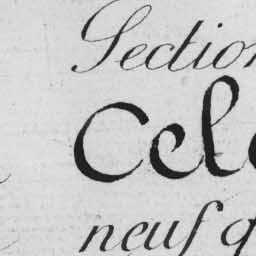 Section
Cele
neuf q